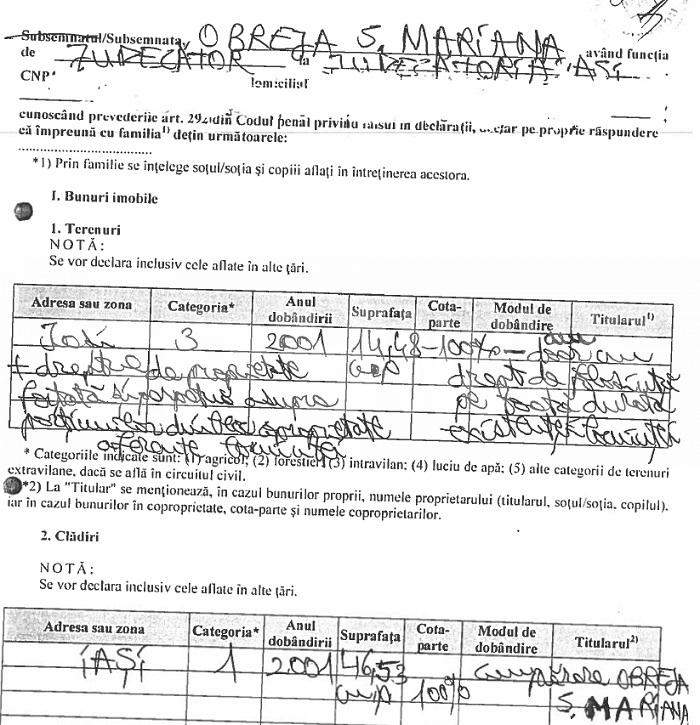 Subsemnatul/Subsemnata, OBREJA S. MARIANA având funcția
de JUDECĂTOR la JUDECĂTORIA IAȘI
CNP domiciliul
cunoscând prevederile art. 292 din Codul penal privind falsul în declarații, declar pe proprie răspundere
că împreună cu familia1) dețin următoarele:
*1) Prin familie se înțelege soțul/soția și copiii aflați în întreținerea acestora.
I. Bunuri imobile
1. Terenuri
NOTĂ:
Se vor declara inclusiv cele aflate în alte țări.
Adresa sau zona Categoria* Anul dobândirii Suprafața Cota-parte Modul de dobândire Titularul1)
Iași 3 2001 14,48 100% doar cu
+ drepturile de proprietate mp drept de folosință
forțată și perpetuă asupra pe toată durata
porțiunilor din teren coproprietate existenței locuinței
aferente locuinței
* Categoriile indicate sunt: (1) agricol; (2) forestier; (3) intravilan; (4) luciu de apă; (5) alte categorii de terenuri
extravilane, dacă se află în circuitul civil.
*2) La "Titular" se menționează, în cazul bunurilor proprii, numele proprietarului (titularul, soțul/soția, copilul),
iar în cazul bunurilor în coproprietate, cota-parte și numele coproprietarilor.
2. Clădiri
NOTĂ:
Se vor declara inclusiv cele aflate în alte țări.
Adresa sau zona Categoria* Anul dobândirii Suprafața Cota-parte Modul de dobândire Titularul2)
IAȘI 1 2001 46,53 cumpărare OBREJA
mp 100% S. MARIANA